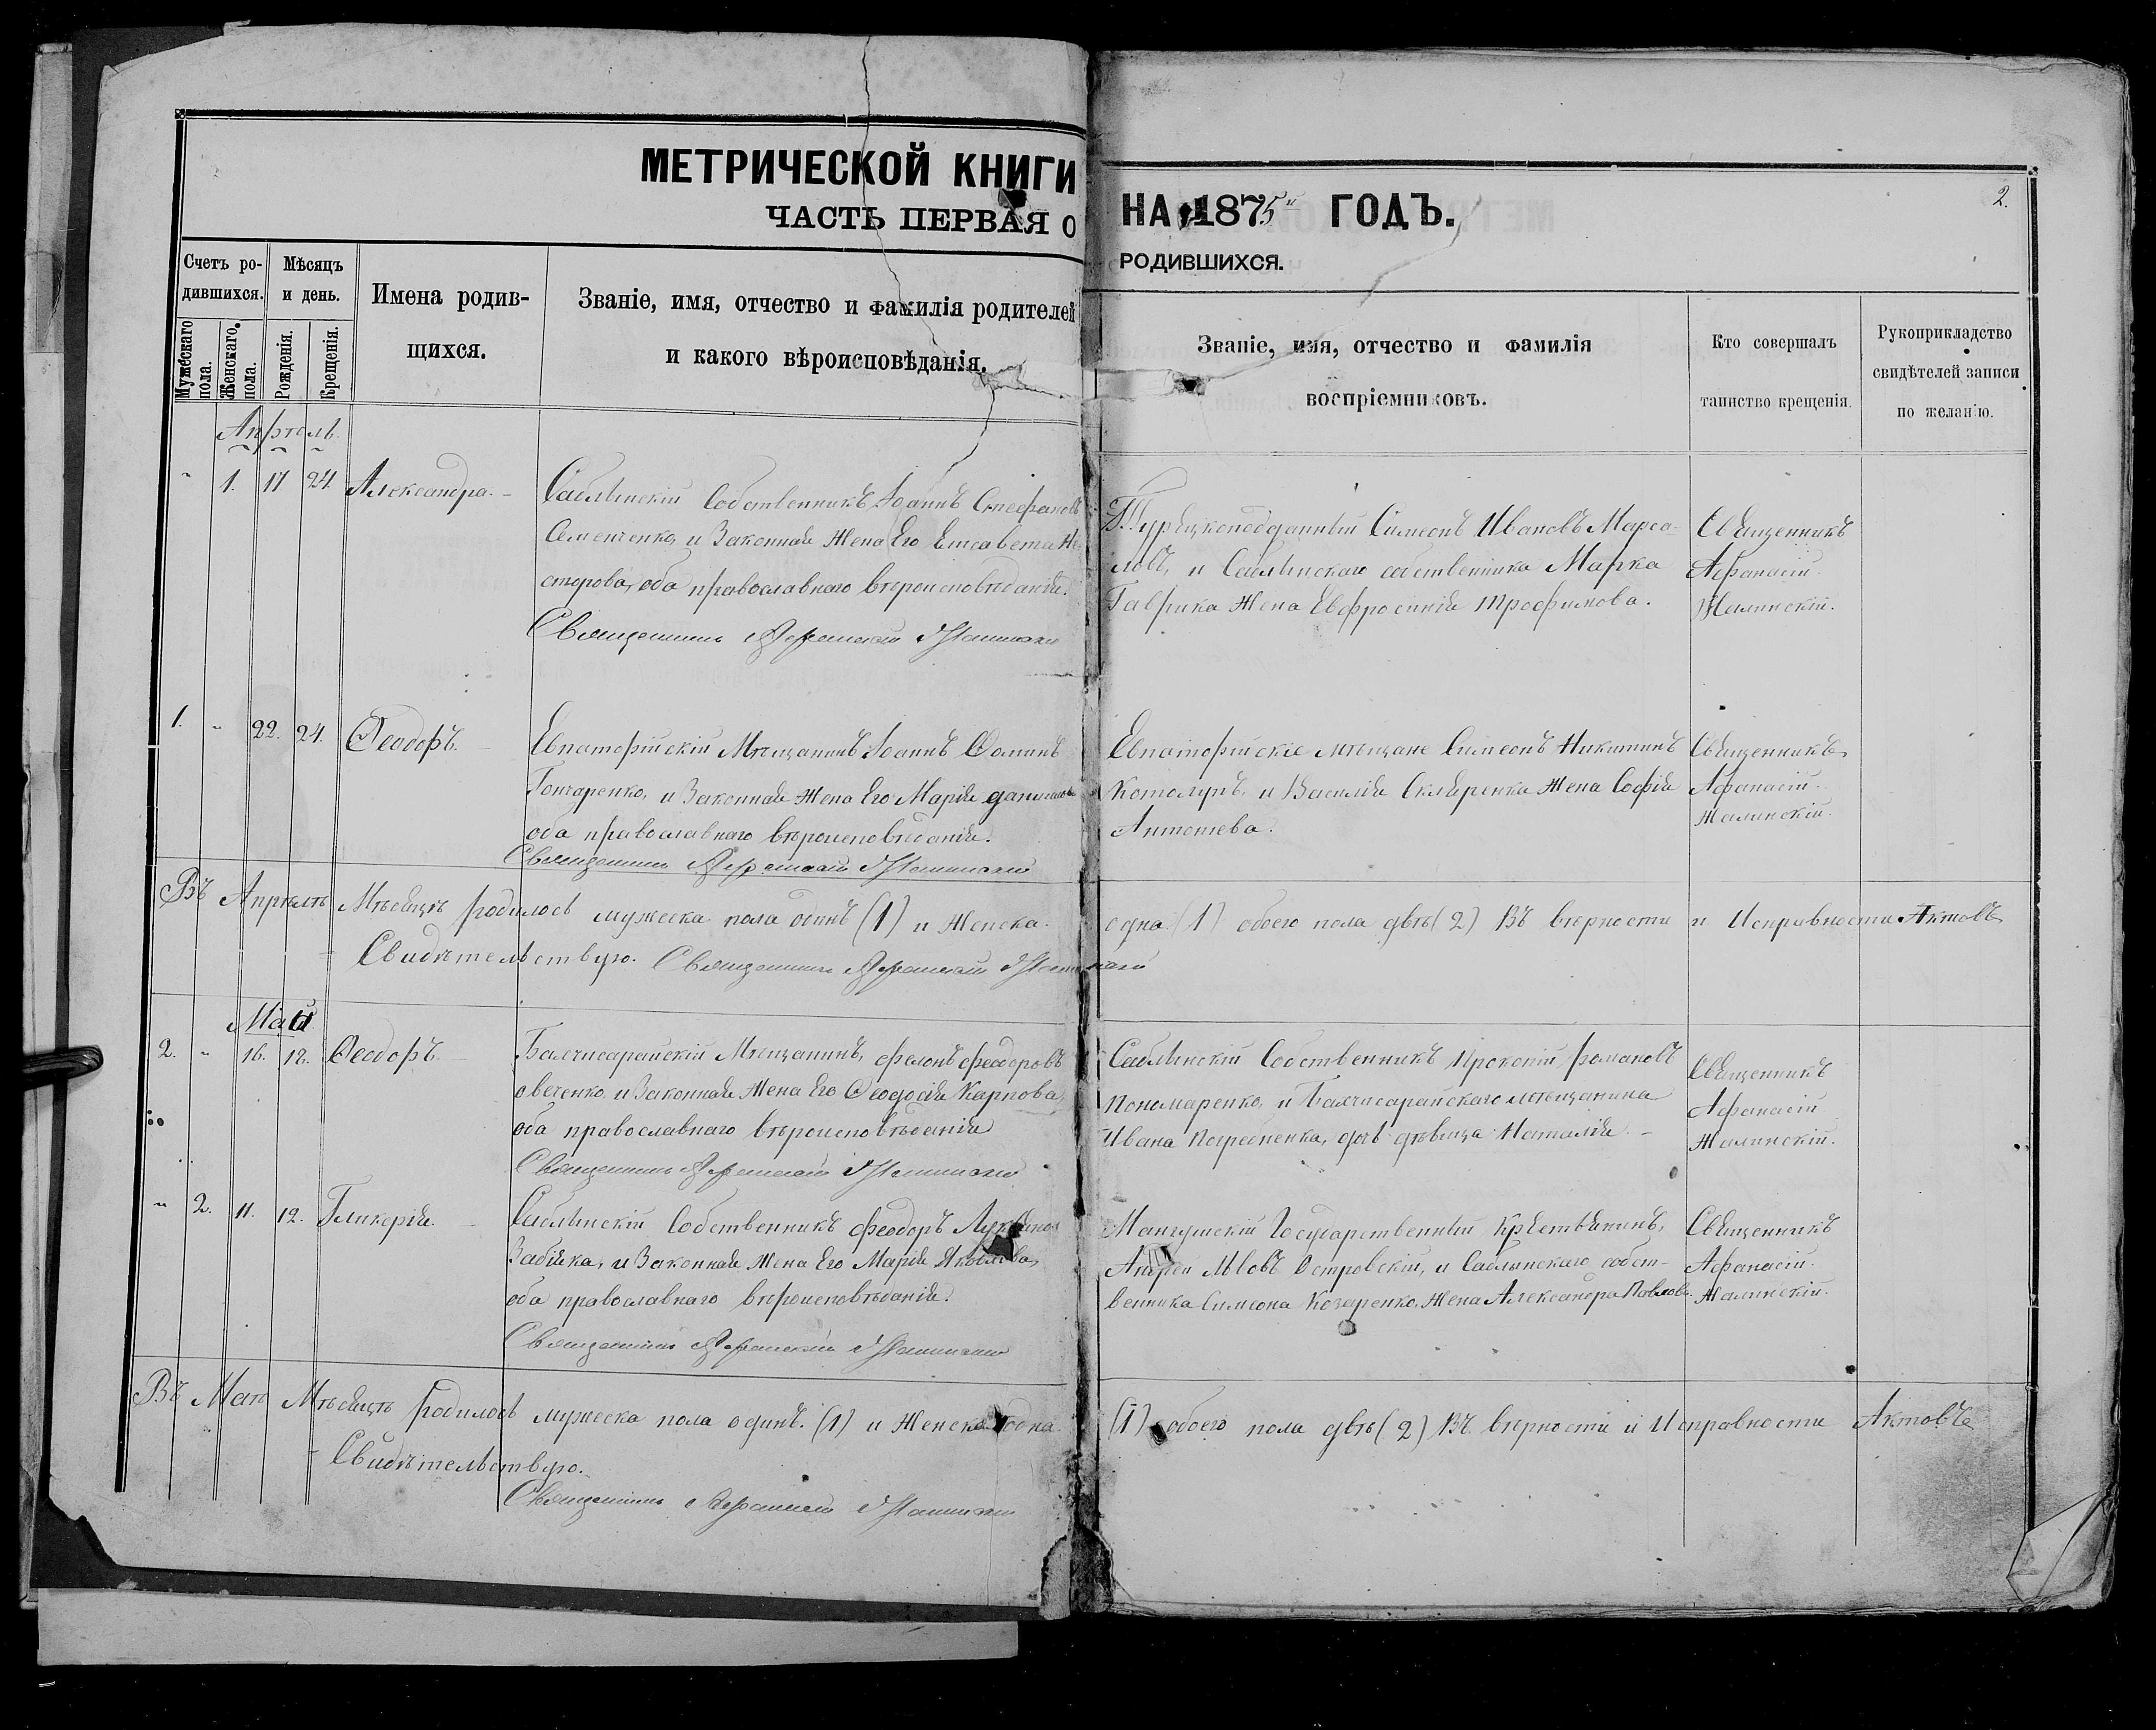 МЕТРИЧЕСКОЙ КНИГИ НА 1875й ГОДЪ.
2.
ЧАСТЬ ПЕРВАЯ О РОДИВШИХСЯ.
Счетъ ро-
дившихся.
Мужескаго пола.
Женскаго пола.
Мѣсяцъ
и день.
Рожденія.
Крещенія.
Имена родив-
щихся.
Званіе, имя, отчество и фамилія родителей
и какого вѣроисповѣданія.
Званіе, имя, отчество и фамилія
воспріемниковъ.
Кто совершалъ
таинство крещенія.
Рукоприкладство
свидѣтелей записи
по желанію.
Апрѣль.
" 1. 17. 24. Александра.
Саблынскій Собственникъ, Іоаннъ Стефановъ
Семенченко, и Законная Жена Его Елисавета Не-
сторова, оба православнаго вѣроисповѣданія.
Священникъ Афанасій
Турецкоподданный Симеонъ Ивановъ
и Саблынскаго собственника Марка
Гаврика Жена Евфросинія Трофимова.
Священникъ
Афанасій
1. " 22. 24. Ѳеодоръ.
Евпаторійскій Мѣщанинъ Іоаннъ Ѳоминъ
Гончаренко, и Законная Жена Его Марія
оба православнаго вѣроисповѣданія.
Священникъ Афанасій
Евпаторійскіе мѣщане Симеонъ Никитинъ
и Василія Скляренка Жена Софія
Антонiева.
Священникъ
Афанасій
Въ Апрѣлѣ Мѣсяцѣ родилось мужеска пола одинъ (1) и Женска одна (1) обоего пола двѣ (2) Въ вѣрности и Исправности Актовъ
Свидѣтельствую. Священникъ Афанасій
Май
2. " 16. 18. Ѳеодоръ.
Бахчисарайскій Мѣщанинъ, феодоровъ
овченко и Законная Жена Его Ѳеодосія Карпова,
оба православнаго вѣроисповѣданія
Священникъ Афанасій
Саблынскій Собственникъ Прокопій романовъ
Пономаренко, и Бахчисарайскаго мѣщанина
Ивана Погребненка, дочь дѣвица Наталія.
Священникъ
Афанасій
" 2. 11. 12. Гликерія.
Саблынскій Собственникъ феодоръ
Забіяка, и Законная Жена Его Марія Яковлева,
оба православнаго вѣроисповѣданія.
Священникъ Афанасій
Мангушскій Государственный Крестьянинъ,
Андрей Львовъ Островскій, и Саблынскаго собст-
венника Симеона Козаренко, Жена Александра Павлова.
Священникъ
Афанасій
Въ Маѣ Мѣсяцѣ родилось мужеска пола одинъ. (1) и Женска одна (1) обоего пола двѣ (2) Въ вѣрности и Исправности Актовъ
Свидѣтельствую.
Священникъ Афанасій